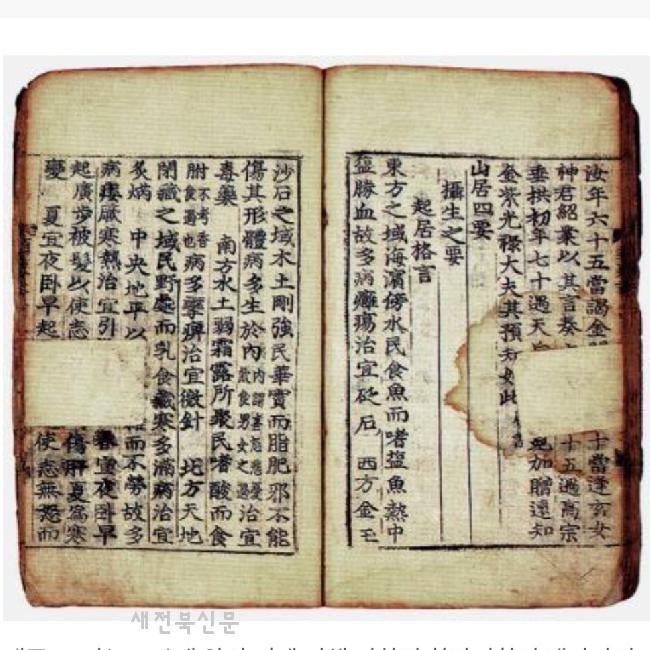 汝年六十五當謁金 十當逢玄女
神君紹業以其言奏 十五過高宗
垂拱初年七十遇天 見加贈遠知
金紫光祿大夫其預知如此
山居四要
攝生之要
起居格言
東方之域海濱傍水民食魚而嗜鹽魚熱中
鹽勝血故多病癰瘍治宜砭石 西方金玉
沙石之域水土剛強民華實而脂肥邪不能
傷其形體病多生於內 內謂喜怒悲憂飲食男女之過 治宜
毒藥 南方水土弱霜露所聚民嗜酸而食
胕 不考香食 也 病多攣痹治宜微針 北方天地
閉藏之域民野處而乳食藏寒多滿病治宜
炙焫 中央地平以 而不勞故多
病痿厥寒熱治宜引 春宜夜卧早
起廣步被髮以使志 傷肝夏為寒
變 夏宜夜卧早起 使志無怒而
새전북신문